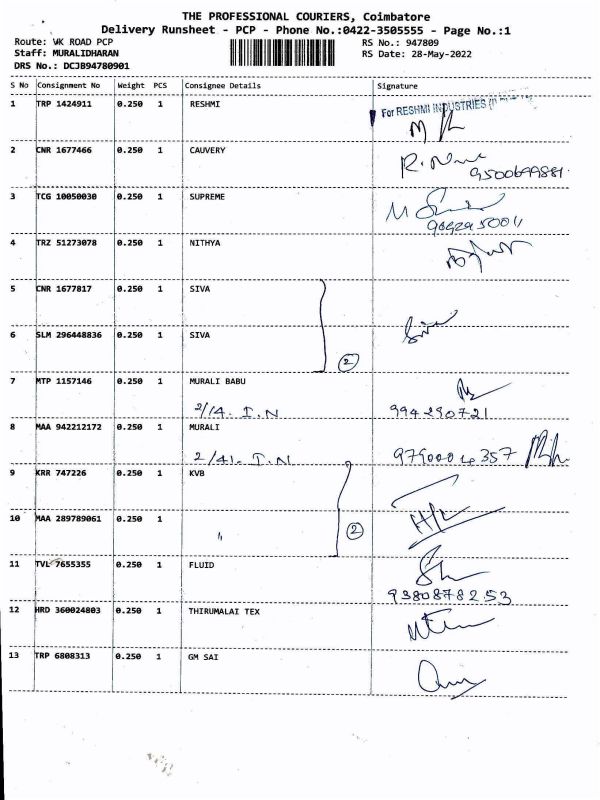 THE PROFESSIONAL COURIERS, Coimbatore
Delivery Runsheet - PCP - Phone No.:0422-3505555 - Page No.:1
Route: VK ROAD PCP
RS No.: 947809
Staff: MURALIDHARAN
RS Date: 28-May-2022
DRS No.: DCJB94780901
S No Consignment No Weight PCS Consignee Details Signature
1 TRP 1424911 0.250 1 RESHMI
For RESHMI INDUSTRIES
2 CNR 1677466 0.250 1 CAUVERY
9500699881
3 TCG 10050030 0.250 1 SUPREME
4 TRZ 51273078 0.250 1 NITHYA
5 CNR 1677817 0.250 1 SIVA
Siva
6 SLM 296448836 0.250 1 SIVA
2
7 MTP 1157146 0.250 1 MURALI BABU
2/14. I.N 994290721
8 MAA 942212172 0.250 1 MURALI
2/41. I.N 9790004357
9 KRR 747226 0.250 1 KVB
10 MAA 289789061 0.250 1
" 2
11 TVL 7655355 0.250 1 FLUID
9380878253
12 HRD 360024803 0.250 1 THIRUMALAI TEX
13 TRP 6808313 0.250 1 GM SAI